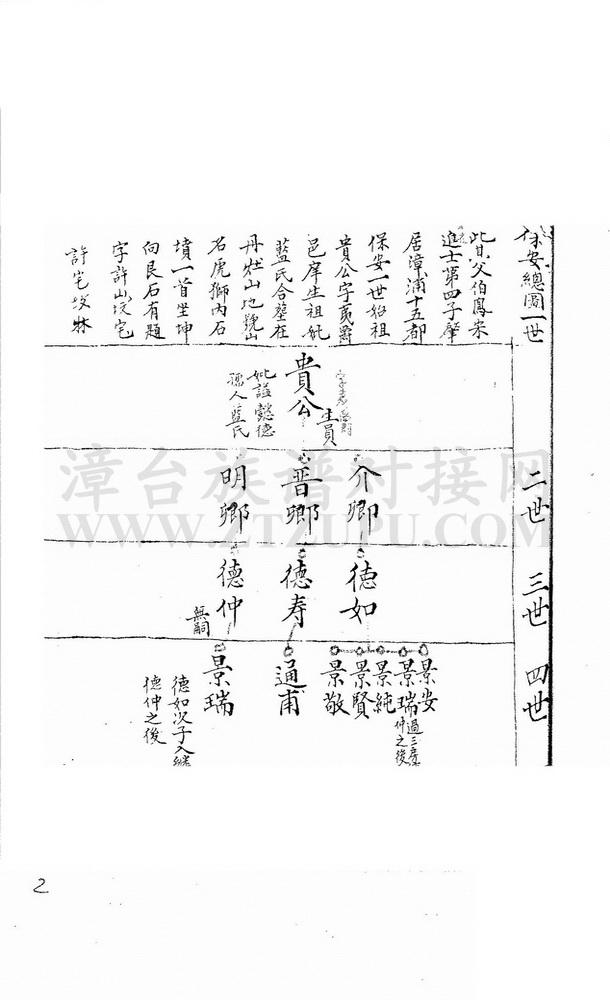 保安總圖一世
此甘父伯鳳宋
進士第四子肇
居漳浦十五都
保安一世始祖
貴公字
邑庠生祖妣
藍氏合塟在
丹灶山地號山
名虎獅內石
墳一首坐坤
向艮石有題
字許山坟宅
許宅坟牀
生員
貴公
妣謚懿德
孺人藍氏
二世
介卿
晋卿
明卿
三世
德如
德寿
德仲
無嗣
四世
景安
景瑞
過三房
仲之後
景純
景賢
景敬
通甫
景瑞
德如次子入繼
德仲之後
漳台族谱对接网
WWW.ZTZUPU.COM
2